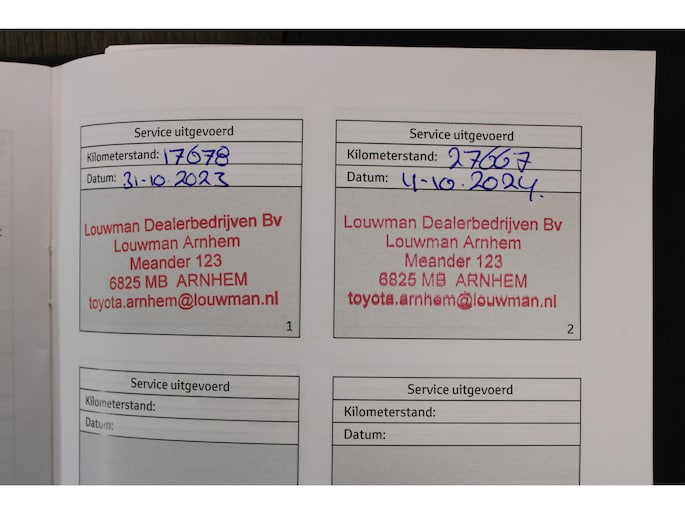 Service uitgevoerd
Kilometerstand: 17678
Datum: 31-10-2023
Louwman Dealerbedrijven Bv
Louwman Arnhem
Meander 123
6825 MB ARNHEM
toyota.arnhem@louwman.nl
1
Service uitgevoerd
Kilometerstand: 27667
Datum: 4-10-2024.
Louwman Dealerbedrijven Bv
Louwman Arnhem
Meander 123
6825 MB ARNHEM
toyota.arnhem@louwman.nl
2
Service uitgevoerd
Kilometerstand:
Datum:
Service uitgevoerd
Kilometerstand:
Datum: